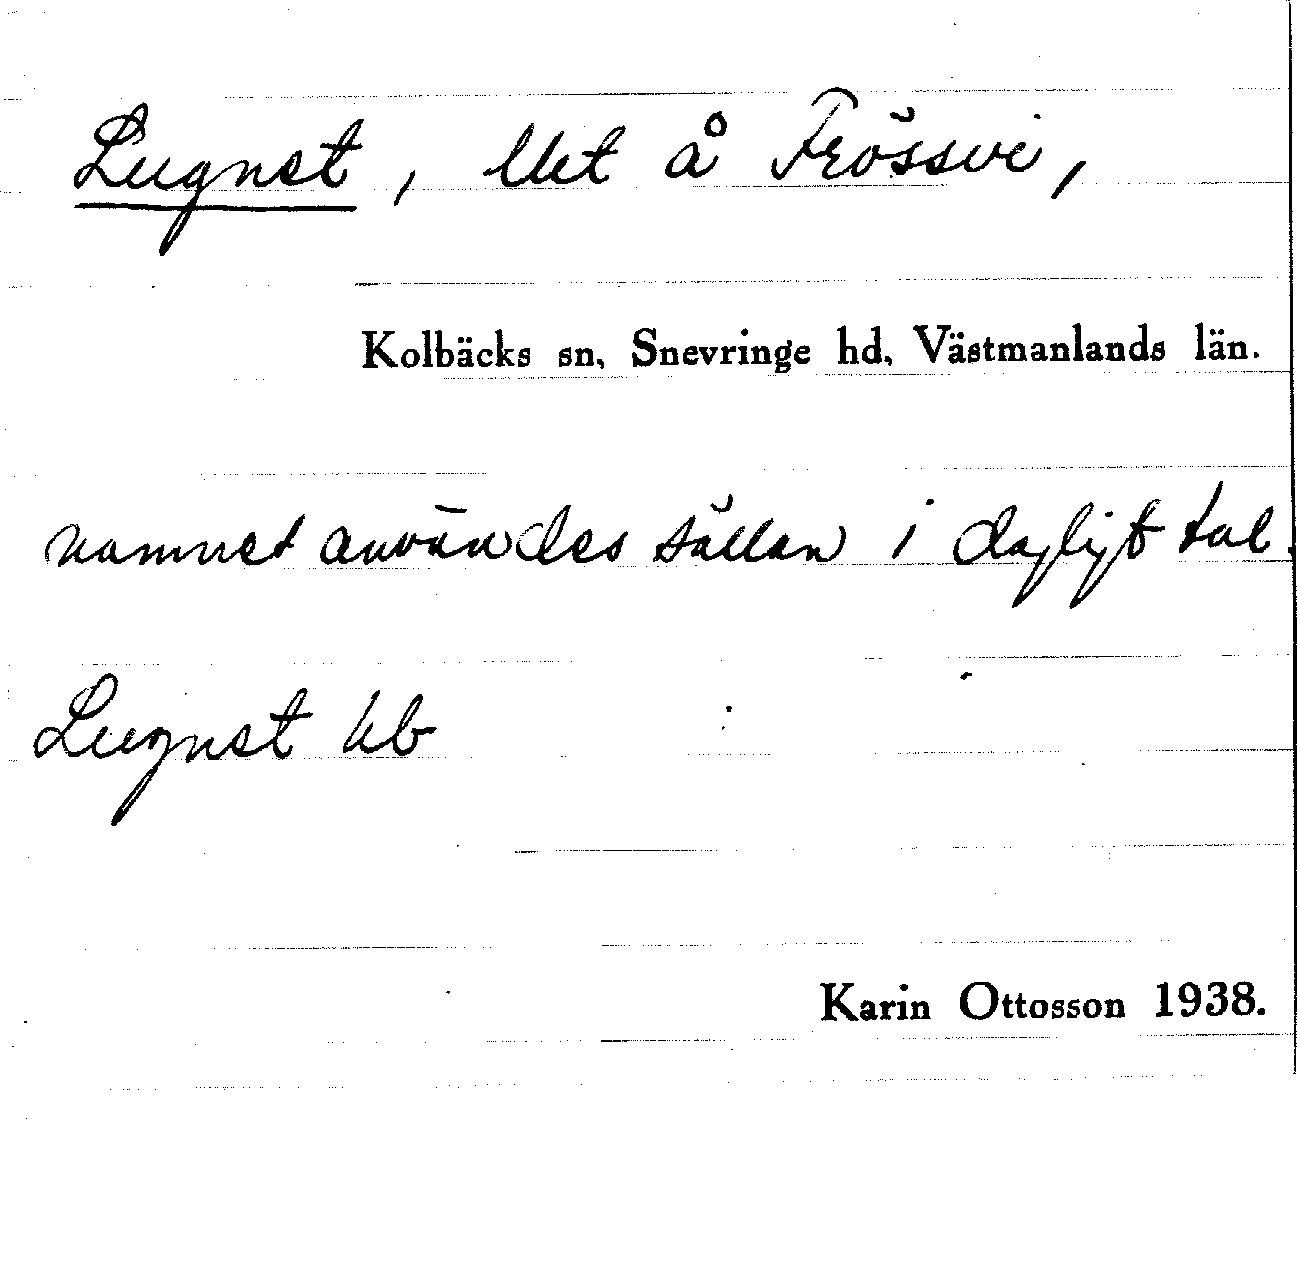 Lugnet, lht å Frössvi,
Kolbäcks sn, Snevringe hd, Västmanlands län.
namnet användes sällan i dagligt tal.
Lugnet kb
Karin Ottosson 1938.